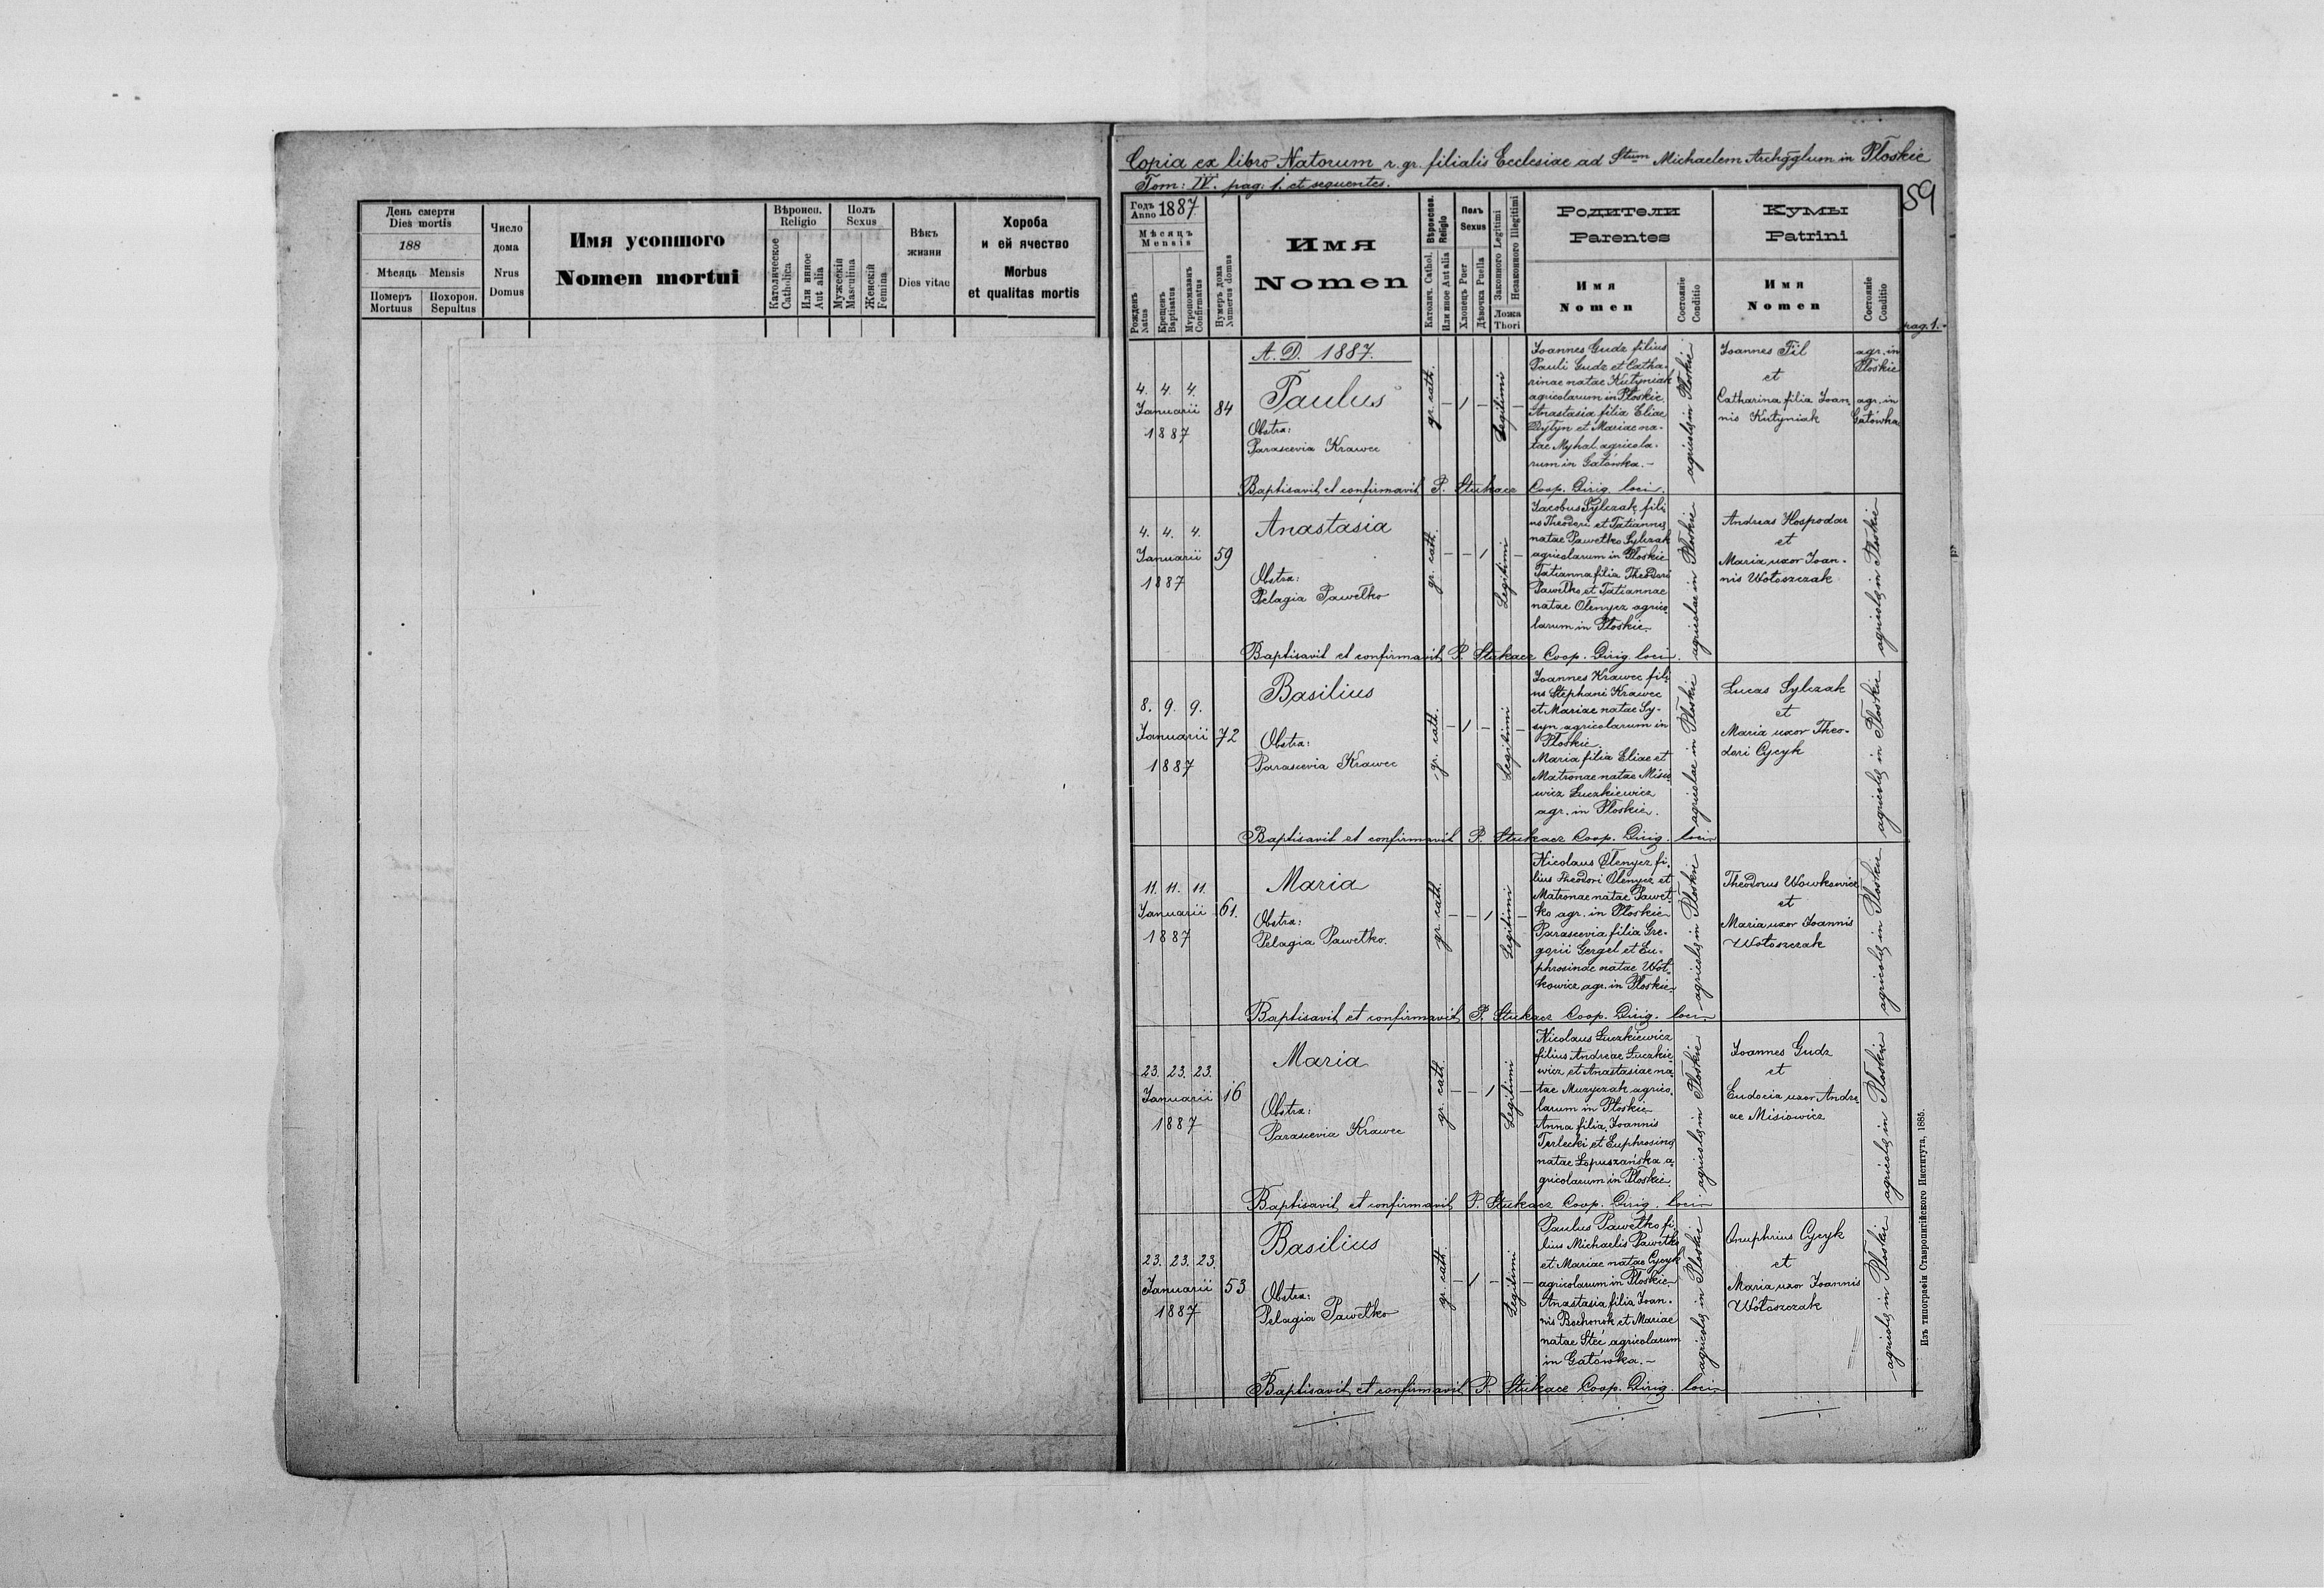 День смерти
Dies mortis
188
Мѣсяць Mensis
Померъ
Mortuus
Похорон.
Sepultus
Число
дома
Nrus
Domus
Имя усопшого
Nomen mortui
Вѣроисп.
Religio
Католическое
Catholica
Или инное
Aut alia
Полъ
Sexus
Мужескій
Masculina
Женскій
Femina
Вѣкъ
жизни
Dies vitae
Хороба
и ей ячество
Morbus
et qualitas mortis
Copia ex libro Natorum r. gr. filialis Ecclesiae ad Stum Michaelem Archgglum in Płoskie
Tom: IV. pag: 1. et sequentes.
59
Годъ
Anno 1887
Мѣсяцъ
Mensis
Рожденъ
Natus
Крещенъ
Baptisatus
Мѵропомазанъ
Confirmatus
Нумеръ дома
Numerus domus
Имя
Nomen
Вѣроиспов.
Religio
Католич. Cathol.
Или иное Aut alia
Полъ
Sexus
Хлопецъ Puer
Дѣвочка Puella
Законного Legitimi
Незаконного Illegitimi
Ложа
Thori
Родители
Parentes
Имя
Nomen
Состояніе
Conditio
Кумы
Patrini
Имя
Nomen
Состояніе
Conditio
pag. 1.
A. D. 1887.
4. 4. 4.
Januarii
1887
84
Paulus
Obstrx:
Parascevia Krawec
gr. cath.
– 1 – –
Legitimi
Joannes Gudz filius
Pauli Gudz et Catha-
rinae natae Kutyniak
agricolarum in Płoskie.
Anastasia filia Eliae
Dytyn et Mariae na-
tae Myhal agricola-
rum in Gatówka. –
agricolae in Płoskie
Joannes Fil
et
Catharina filia Joan
nis Kutyniak
agr. in
Płoskie
agr. in
Gatówka
Baptisavit et confirmavit P. Stukacz Coop. Dirig. loci.
4. 4. 4.
Januarii
1887
59
Anastasia
Obstrx:
Pelagia Pawełko
gr. cath.
– – 1 –
Legitimi
Jacobus Sylczak fili
us Theodori et Tatiannae
natae Pawełko Sylczak
agricolarum in Płoskie
Tatianna filia Theodori
Pawełko et Tatiannae
natae Ołenycz agrico
larum in Płoskie.
agricolae in Płoskie
Andreas Hospodar
et
Maria uxor Joan-
nis Wołoszczak
agricolae in Płoskie
Baptisavit et confirmavit P. Stukacz Coop. Dirig. loci.
8. 9. 9.
Januarii
1887
72
Basilius
Obstrx:
Parascevia Krawec
gr. cath.
– 1 – –
Legitimi
Joannes Krawec fili
us Stephani Krawec
et Mariae natae Sy-
syn agricolarum in
Płoskie.
Maria filia Eliae et
Matronae natae Misio
wicz Łuczkiewicz
agr. in Płoskie.
agricolae in Płoskie
Lucas Sylczak
et
Maria uxor Theo-
dori Cycyk
agricolae in Płoskie
Baptisavit et confirmavit P. Stukacz Coop. Dirig. loci
11. 11. 11.
Januarii
1887
61.
Maria
Obstrx:
Pelagia Pawełko.
gr. cath.
– – 1 –
Legitimi
Nicolaus Ołenycz fi-
lius Theodori Ołenycz et
Matronae natae Paweł
ko agr. in Płoskie
Parascevia filia Gre-
gorii Gergel et Eu-
phrosinae natae Woł-
kowicz agr. in Płoskie
agricolae in Płoskie
Theodorus Wowkowicz
et
Maria uxor Joannis
Wołoszczak
agricolae in Płoskie
Baptisavit et confirmavit P. Stukacz Coop. Dirig. loci
23. 23. 23.
Januarii
1887
16
Maria
Obstrx:
Parascevia Krawec
gr. cath.
– – 1 –
Legitimi
Nicolaus Łuczkiewicz
filius Andreae Łuczkie
wicz et Anastasiae na
tae Muzyczak agrico
larum in Płoskie
Anna filia Joannis
Terlecki et Euphrosinae
natae Łopuszańska a
gricolarum in Płoskie
agricolae in Płoskie
Joannes Gudz
et
Eudocia uxor Andre
ae Misiowicz
agricolae in Płoskie
Baptisavit et confirmavit P. Stukacz Coop. Dirig. loci
23. 23. 23.
Januarii
1887
53
Basilius
Obstrx:
Pelagia Pawełko
gr. cath.
– 1 – –
Legitimi
Paulus Pawełko fi-
lius Michaelis Pawełko
et Mariae natae Cycyk
agricolarum in Płoskie.
Anastasia filia Joan-
nis Bochonok et Mariae
natae Steć agricolarum
in Gatówka. –
agricolae in Płoskie
Onuphrius Cycyk
et
Maria uxor Joannis
Wołoszczak
agricolae in Płoskie
Baptisavit et confirmavit P. Stukacz Coop. Dirig. loci
Изъ типографіи Ставропигійского Института, 1885.